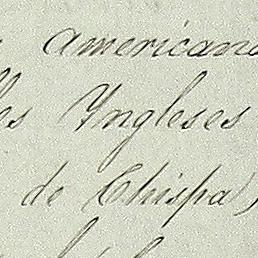 americana
les Yngleses
de Chispa)